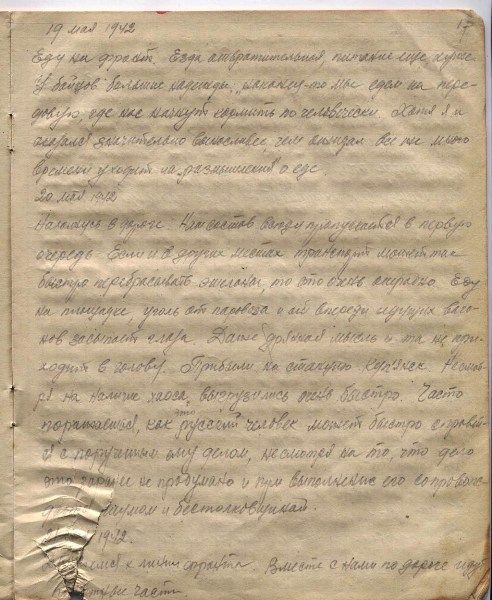 19 мая 1942
17
Еду на фронт. Езда отвратительная, питание еще хуже
У бойцов большие надежды, наконец-то мы едем на пере-
довую, где нас начнут кормить по человечески. Хотя я и
оказался значительно выносливее, чем ожидал все же много
времени уходит на "размышления" о еде.
20 мая 1942
Нахожусь в дороге. Наш состав всюду пропускается в первую
очередь. Если и в других местах транспорт может так
быстро перебрасывать эшелоны, то это очень отрадно. Еду
на площадке, уголь от паровоза и от впереди идущих ваго-
нов засыпает глаза. Даже мысль и та не при-
ходит в голову. Прибыли на станцию Купянск. Несмот-
ря на наличие хаоса, выгрузились очень быстро. Часто
поражаешься, как это русский человек может быстро справит-
ся с порученным ему делом, несмотря на то, что дело
это и не продумано и при выполнение его сопровож-
и бестолковщиной.
1942.
к линии фронта. Вместе с нами по дороге идут
части